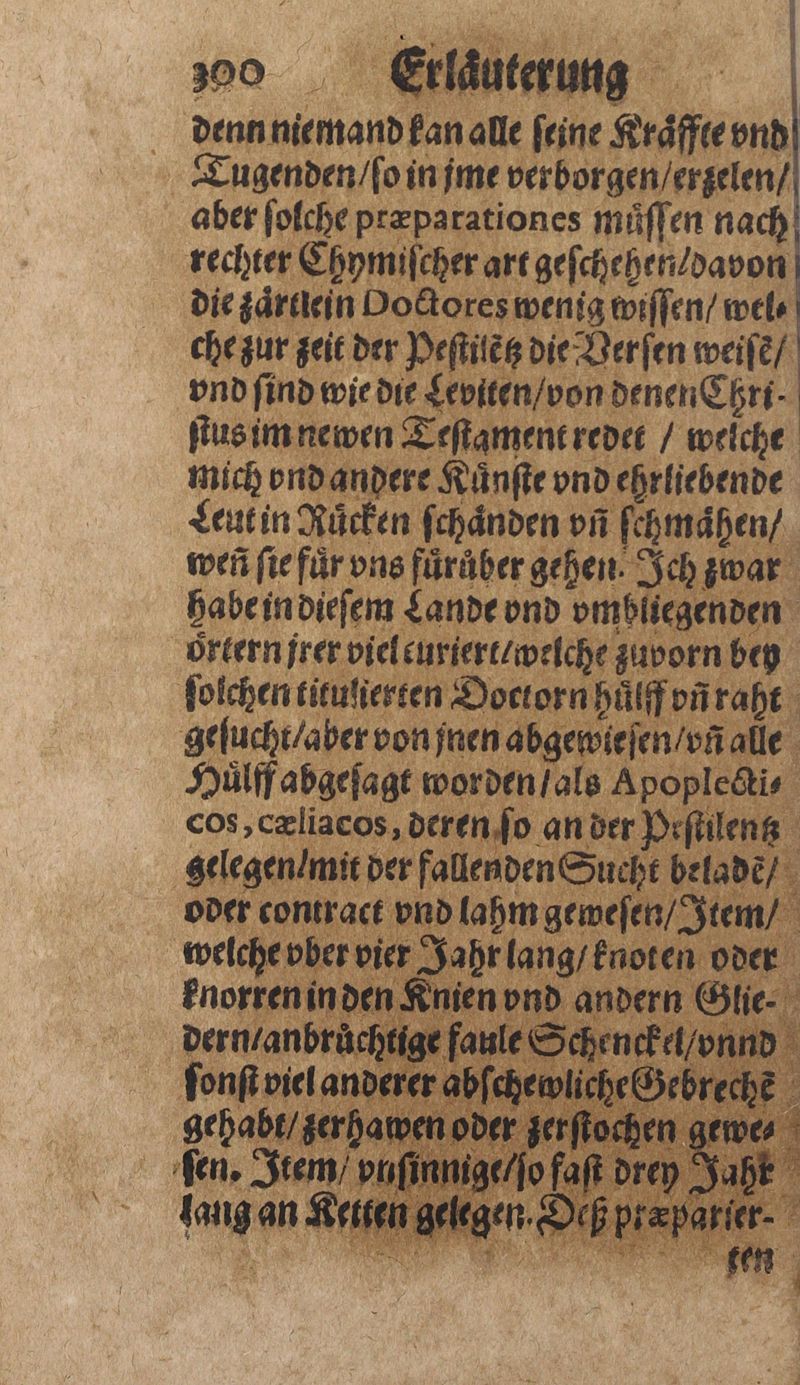 300 Erlaͤuterung
denn niemand kan alle ſeine Kraͤffte vnd
Tugenden/ſo in jme verborgen/erzelen/
aber ſolche præparationes muͤſſen nach
rechter Chymiſcher art geſchehen/davon
die zaͤrtlein Doctores wenig wiſſen/ wel⸗
che zur zeit der Peſtilẽtz die Verſen weiſẽ/
vnd ſind wie die Leviten/von denen Chri-
ſtus im newen Teſtament redet / welche
mich vnd andere Kuͤnſte vnd ehrliebende
Leut in Ruͤcken ſchaͤnden vñ ſchmaͤhen/
weñ ſie fuͤr vns fuͤruͤber gehen. Ich zwar
habe in dieſem Lande vnd vmbliegenden
oͤrtern jrer viel curiert/welche zuvorn bey
ſolchen titulierten Doctorn huͤlff vñ raht
geſucht/aber von jnen abgewieſen/vñ alle
Huͤlff abgeſagt worden/als Apoplecti⸗
cos, cæliacos, deren ſo an der Peſtilentz
gelegen/mit der fallenden Sucht beladẽ/
oder contract vnd lahm geweſen/Item/
welche vber vier Jahr lang/knoten oder
knorren in den Knien vnd andern Glie-
dern/anbruͤchtige faule Schenckel/vnnd
ſonſt viel anderer abſchewliche Gebrechẽ
gehabt/zerhawen oder zerſtochen gewe⸗
ſen. Item/ vnſinnige/ſo faſt drey Jahr
lang an Ketten gelegen. Deß præparier-
ten